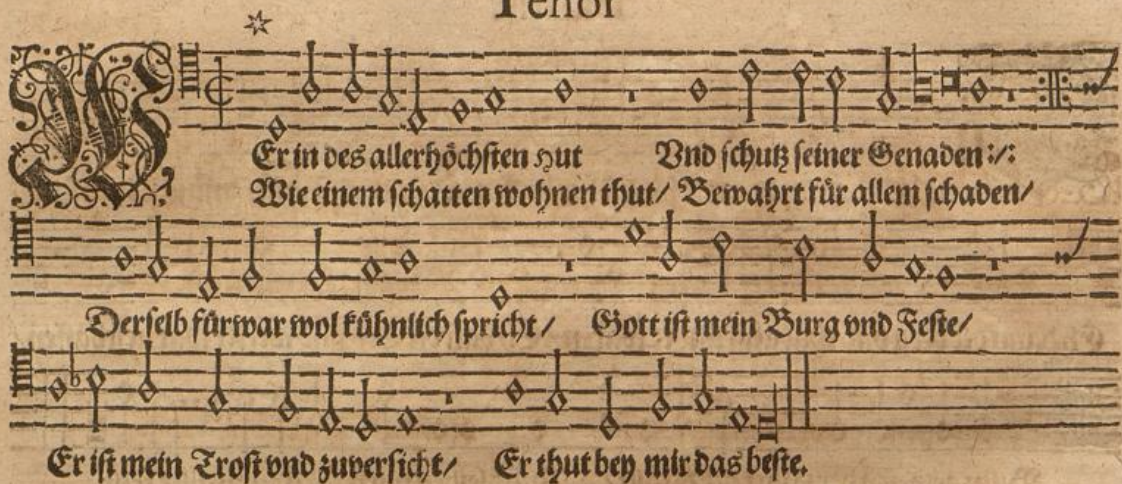 Tenor
WEr in des allerhöchsten Hut Vnd schutz seiner Genaden :/:
Wie einem schatten wohnen thut/ Bewahrt für allem schaden/
Derselb fürwar wol kühnlich spricht/ Gott ist mein Burg vnd Feste/
Er ist mein Trost vnd zuversicht/ Er thut bey mir das beste.